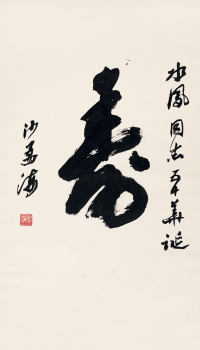 水鳳同志五十華誕
壽
沙孟海